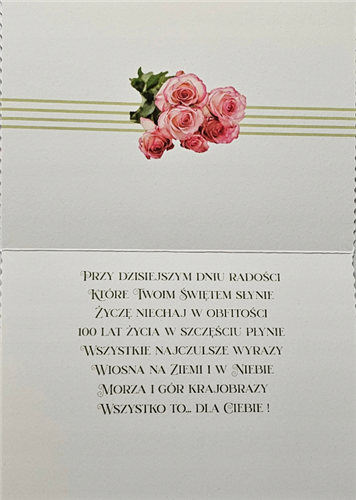 Przy dzisiejszym dniu radości
Które Twoim Świętem słynie
Życzę niechaj w obfitości
100 lat życia w szczęściu płynie
Wszystkie najczulsze wyrazy
Wiosna na Ziemi i w Niebie
Morza i gór krajobrazy
Wszystko to... dla Ciebie !